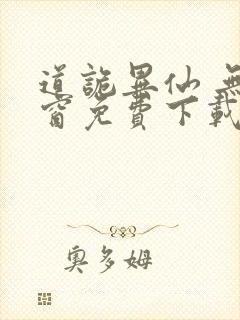 道詭異仙 無
窗免費下載
奧多姆